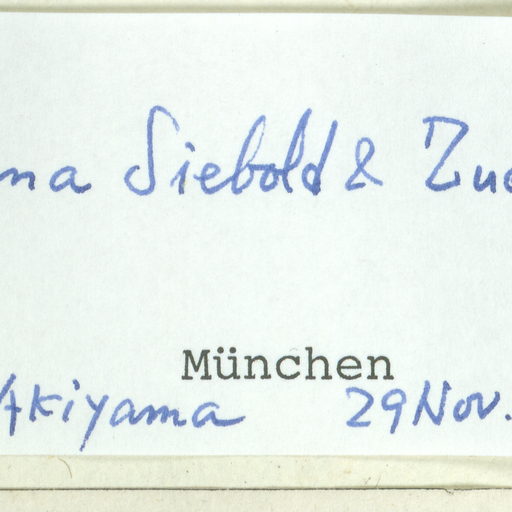 na Siebold & Zuc
München
Akiyama 29 Nov.